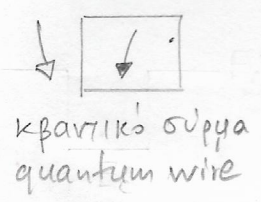 κβαντικό σύρμα
quantum wire